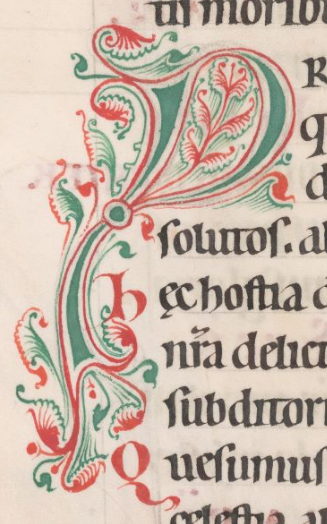 tis moribu
P R
q
d
solutos. a
h ęc hostia
nr̄a delict
subditor
Q uesumus
celestia